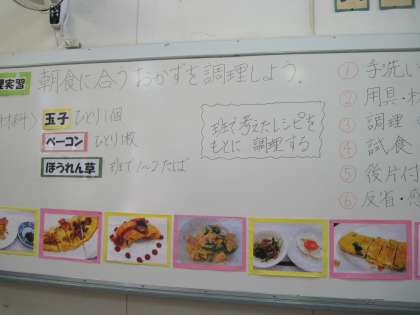 理実習 朝食に合うおかずを調理しよう.
材料
玉子 ひとり1個
ベーコン ひとり1枚
ほうれん草 班で1〜2たば
班で考えたレシピを
もとに 調理する
① 手洗い
② 用具・材
③ 調理
④ 試食
⑤ 後片付
⑥ 反省・感